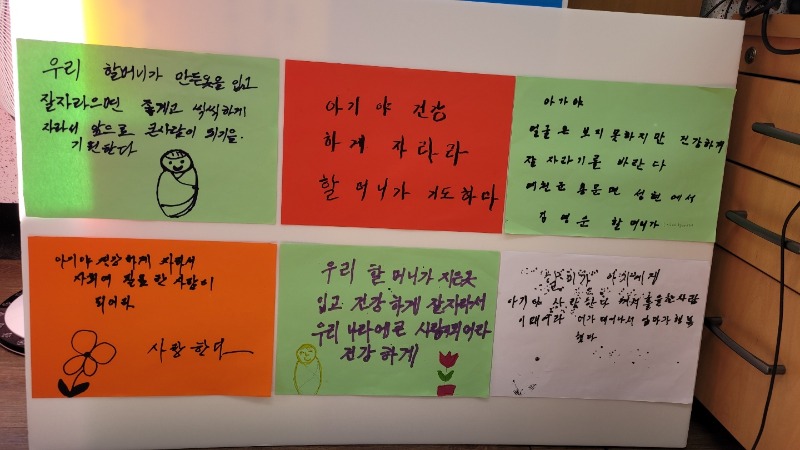 우리 할머니가 만든옷을 입고
잘자라으면 좋게고 씩씩하게
자라서 앞으로 큰사람이 되기을.
기원한다
아기야 건강
하게 자라라
할머니가 기도하마
아가야
얼굴은 보지못하지만 건강하게
잘 자라기를 바란다
예천군 용문면 성현에서
김영순 할머니가
아이야 건강하게 자라서
사회에 필요한 사람이
되어라
사랑한다
우리 할머니가 지은옷
입고 건강하게 잘자라서
우리나라에큰 사람되어라
건강하게
아기야 사랑한다 커서 훌륭한사람
이 되어라 너가 태어나서 엄마가 행복